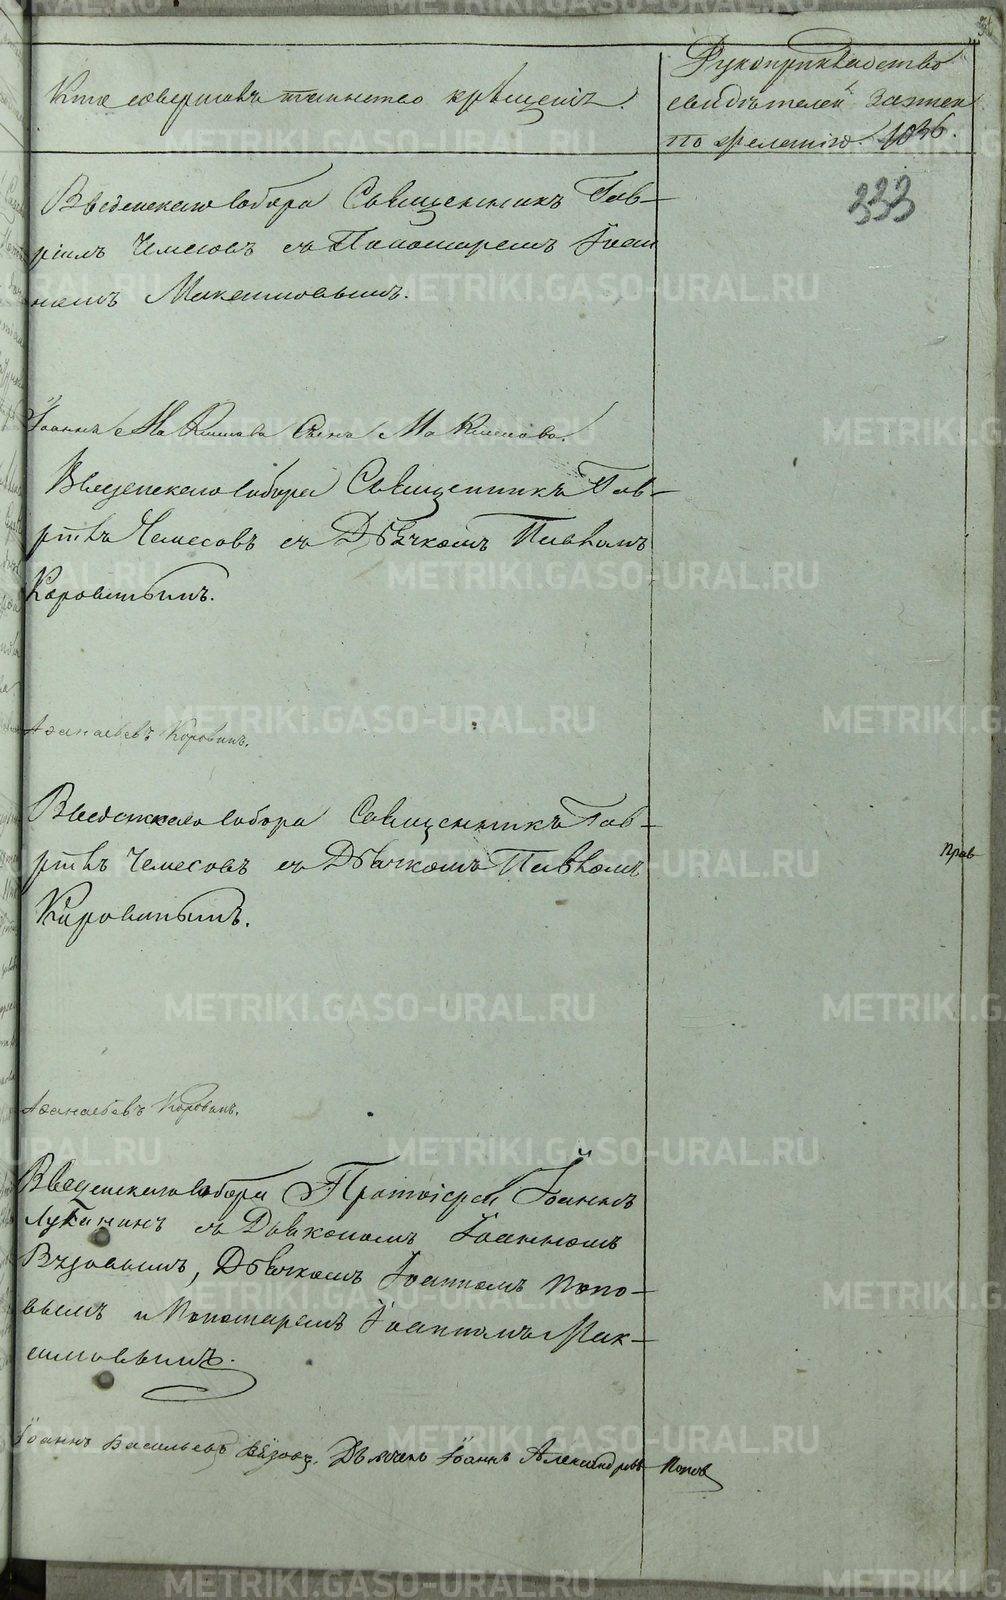 Кто совершалъ таинство крещенія.
Рукоприкладство
свидѣтелей записи
по желанію. 1036.
333
Введенскаго собора Священникъ Гав-
ріилъ Чемесовъ съ Пономаремъ Іоан
номъ Максимовымъ.
Іоаннъ Максимовъ Максимовъ.
Введенскаго собора Священникъ Гав-
ріилъ Чемесовъ съ Дьячкомъ Павломъ
Коровинымъ.
Коровинъ.
Введенскаго собора Священникъ Гав-
ріилъ Чемесовъ съ Дьячкомъ Павломъ
Коровинымъ.
прав
Коровинъ.
Введенскаго собора Протоіерей Іоаннъ
Луканинъ съ Діакономъ Іоанномъ
Дьячкомъ Іоанномъ Попо-
вымъ и Пономаремъ Іоанномъ Мак-
симовымъ.
Іоаннъ Васильевъ Дьячекъ Іоаннъ Александровъ Поповъ
METRIKI.GASO-URAL.RU